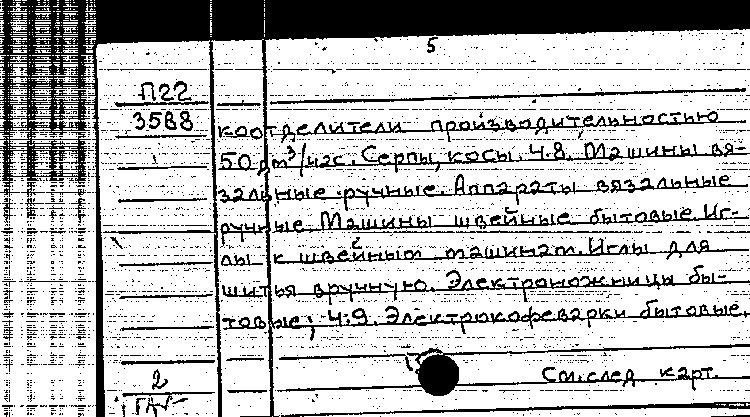 5
П22
3588
коотделители производительностью
50 дм³/час. Серпы, косы. Ч.8. Машины вя-
зальные ручные. Аппараты вязальные
ручные. Машины швейные бытовые. Иг-
лы к швейным машинам. Иглы для
шитья вручную. Электроножницы бы-
товые; Ч.9. Электрокофеварки бытовые.
2
См. след. карт.